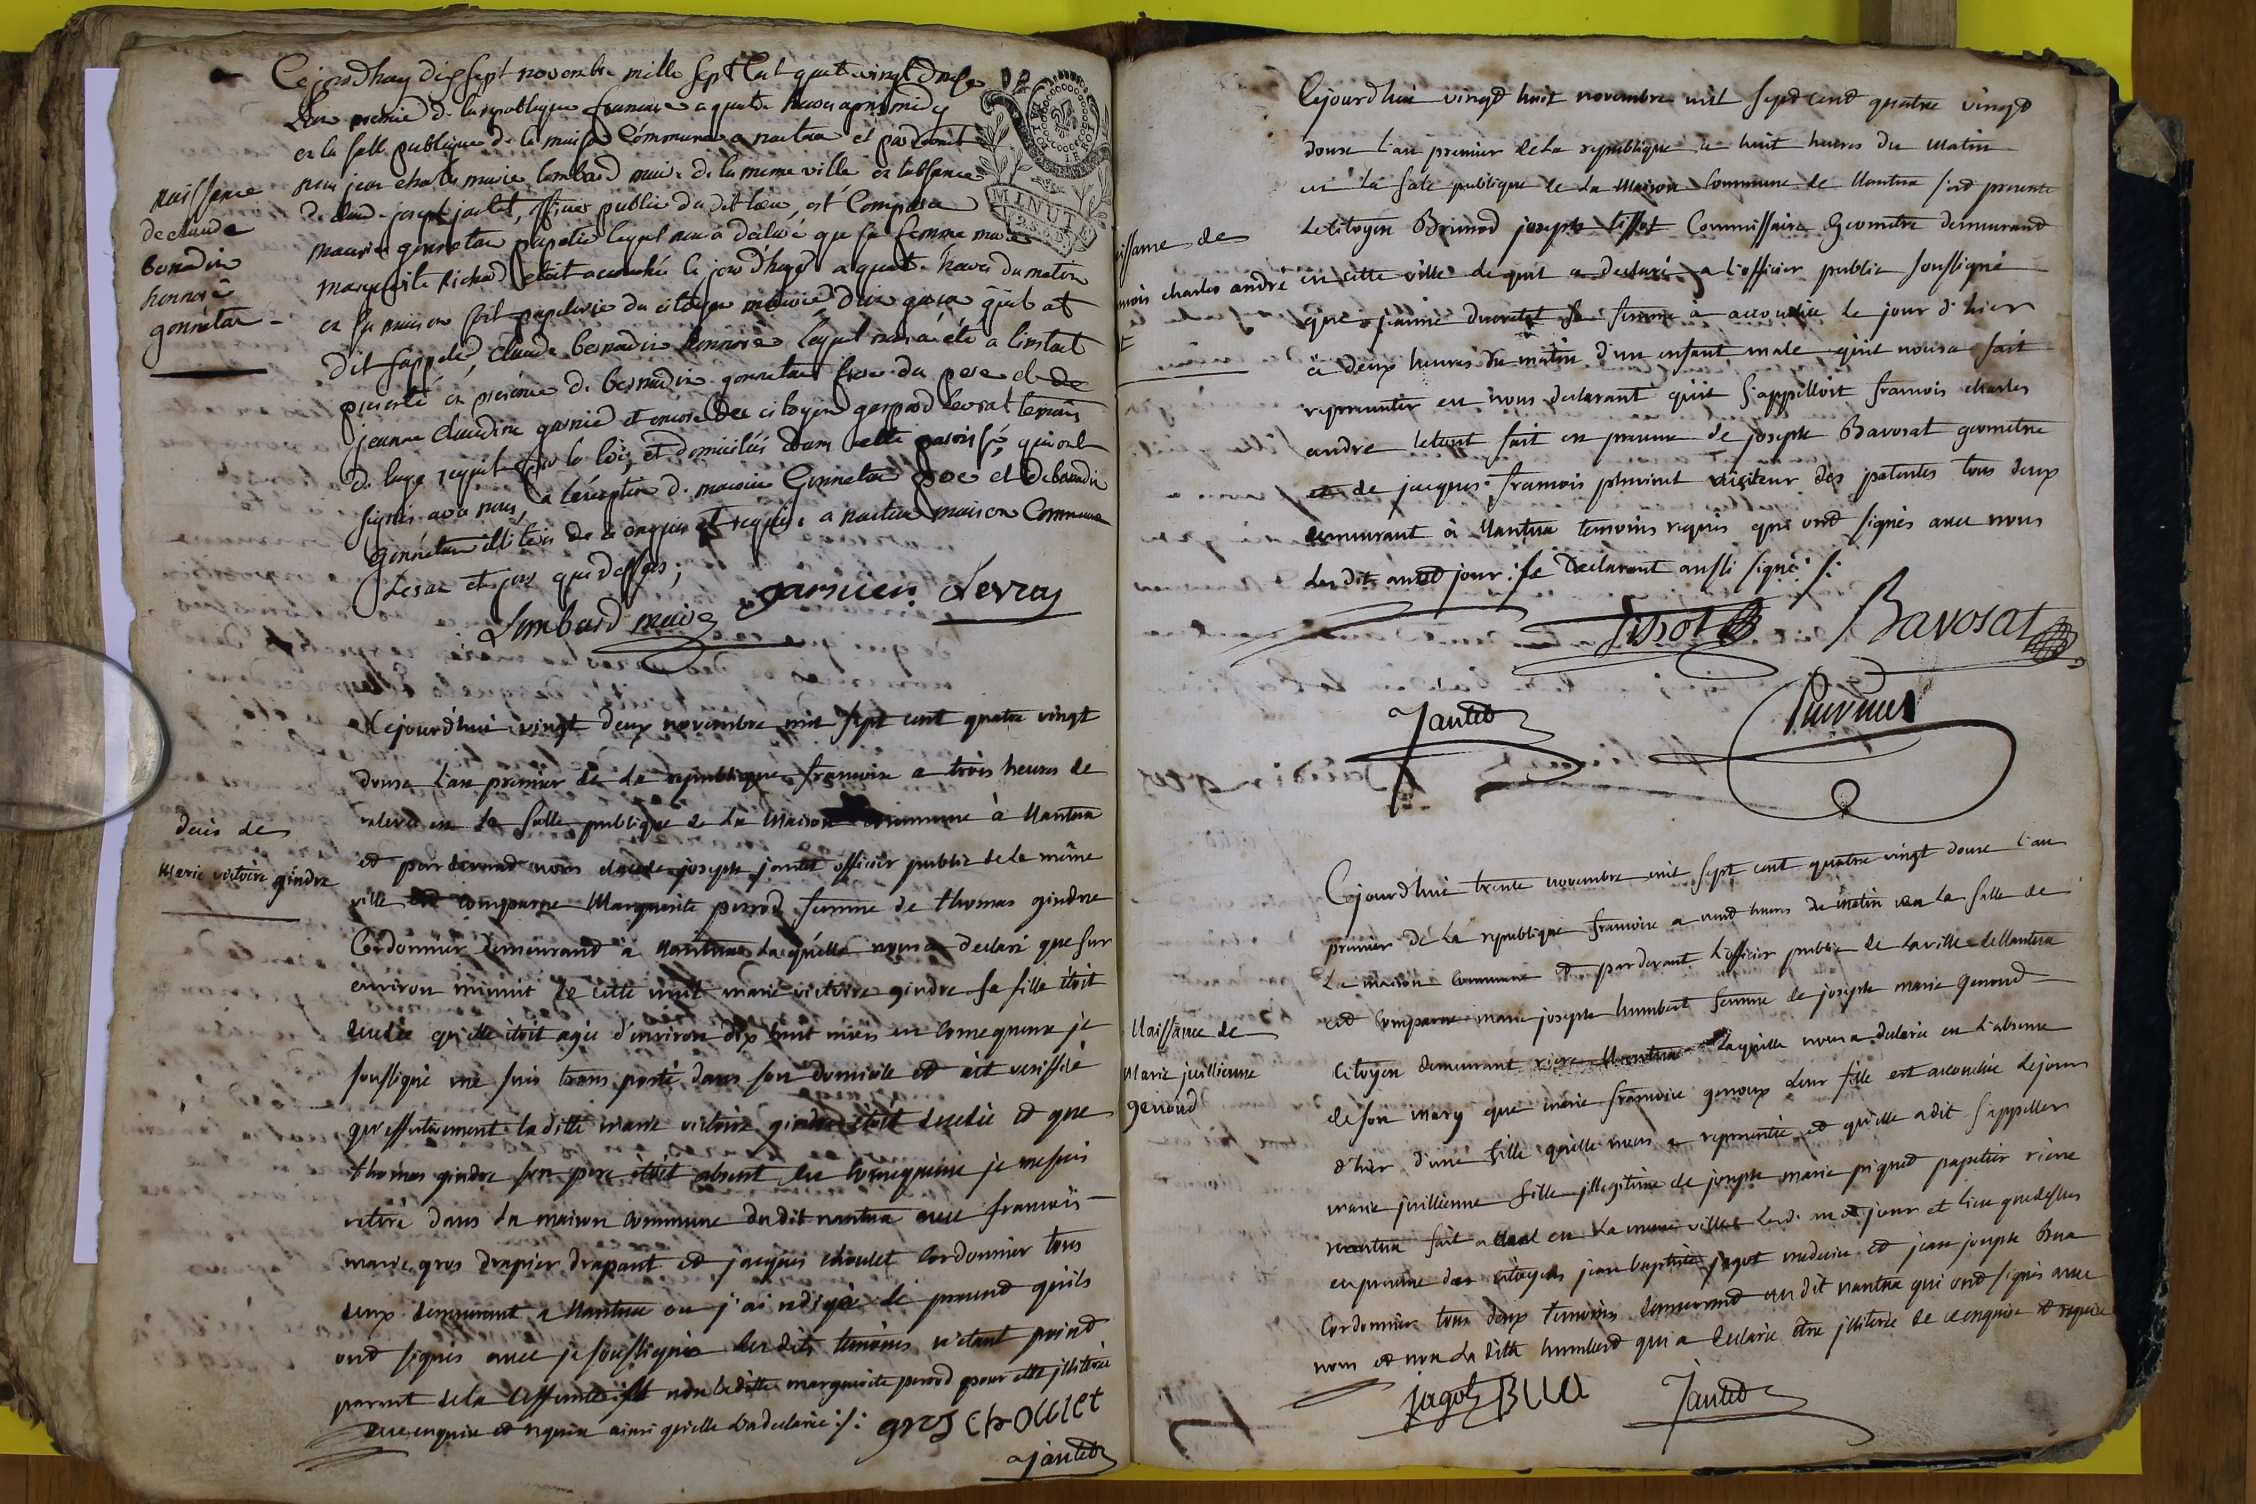 Cejourdhuy dix sept novembre mille sept Cent quatrevingt douze
L'an premier de la republique francaise a quatre heures apres midy
en la salle publique de la maison Commune a nantua et pardevant
nous jean charles marie lombard maire de la meme ville en labsence
de claude joseph jantet, officier public du dit lieu, est Comparu
maurice gonnetan papetier lequel nous a déclaré que sa femme marie
marguerite Richard etoit acouchée ce jourd'huy a quatre heures du matin
en sa maison soit papeterie du citoyen d'un garcon quil at
dit sappeler claude bernardin honnoré lequel nous a été a linstant
presenté en presence de bernardin gonnetan frere du pere et de
jeanne claudine garnier et encore du citoyen gaspard levrat temoins
de lage requit par la loi, et domiciliés dans cette paroisse, qui ont
signés avec nous, a lexception de maurice Gonnetan pere et de bernardin
gonnetan illiterés de ce enquis et requis a nantua maison Commune
Les an et jour que dessus;
naissance
de claude
bernardin
honnoré
gonnetan
MINUTE
Lombard maire garnier Levrat
Cejourd'hui vingt deux novembre mil sept cent quatre vingt
douze L'an premier de La republique francoise a trois heures de
relevée en la salle publique de La Maison Commune à Nantua
et pardevant nous claude joseph jantet officier public de la même
ville est comparue Marguerite perrod femme de thomas gindre
Cordonnier demeurand à Nantua laquelle nous a declaré que sur
environ minuit de cette nuit marie victoire gindre sa fille étoit
decedée qu'elle étoit agée d'environ dix huit mois en consequence je
soussigné me suis transporté dans son domicile et ait verifféié
qu'effectivement laditte marie victoire gindre étoit decedée et que
thomas gindre son pere étoit absent en consequence je me suis
retiré dans la maison commune dudit nantua avec francois
marie gros drapier drapant et jacques choulet Cordonnier tous
deux demeurant a Nantua ou j'ai redigée le presend qu'ils
ont signés avec je soussignés lesdits temoins n'étant poind
parent de la deffunte et non ladite marguerite perrod pour etre illiterée
de ce enquise et requise ainsi qu'elle l'a declarée :/:
deces de
Marie victoire gindre
gros choulet
jantet
Cejourd'hui vingt huit novembre mil sept cend quatre vingd
douse l'an premier de La republique a huit heures du Matin
en la sale publique de La Maison Commune de Nantua s'est presenté
le citoyen Brunod joseph tissot Commissaire Geometre demeurand
en cette ville lequel a declaré a l'officier public soussigné
que jeanne ducretet sa femme à accouchée le jour d'hier
à deux heures du matin d'un enfant male qu'il nous a fait
representer en nous declarant qu'il s'appelloit francois charles
andre letout fait en presence de joseph Bavosat geometre
et de jacques francois pluvinet visiteur des patentes tous deux
demeurant à Nantua temoins requis qui ond signés avec nous
lesdits an et jour :/: le Declarant aussi signé :/:
issance de
ncois charles andré
Tissot Bavosat
Jantet
Pluvinet
Cejourd'hui trente novembre mil sept cent quatre vingt douse L'an
premier de La republique francoise a neuf heures du matin en La salle de
La maison commune et pardevant L'officier public de La ville de Nantua
est comparue marie joseph humbert femme de joseph marie Genoud
Citoyen demeurant riere Nantua Laquelle nous a declarée en l'absence
de son mary que marie francoise genoux leur fille est accouchée lejour
d'hier d'une fille qu'elle nous a representée et qu'elle a dit s'appeller
marie juillienne fille illegitime de joseph marie piqued papetier riere
nantua fait en La meme ville lesd. an et jour et lieu que dessus
en presence des citoyens jean baptiste jagot medecin et jean joseph Bua
Cordonnier tous deux temoins demeurand audit nantua qui ond signés avec
nous et non La ditte humbert qui a declarée être illiterée de ce enquise et requise
Naissance de
Marie juillienne
genoud
jagot BUA Jantet